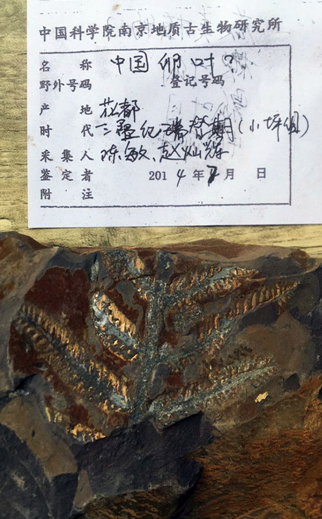 中国科学院南京地质古生物研究所
名 称 中国卵叶?
野外号码 登记号码
产 地 花都
时 代 三叠纪瑞替期(小坪组)
采集人 陈敏、赵灿辉
鉴定者 2014年7月 日
附 注